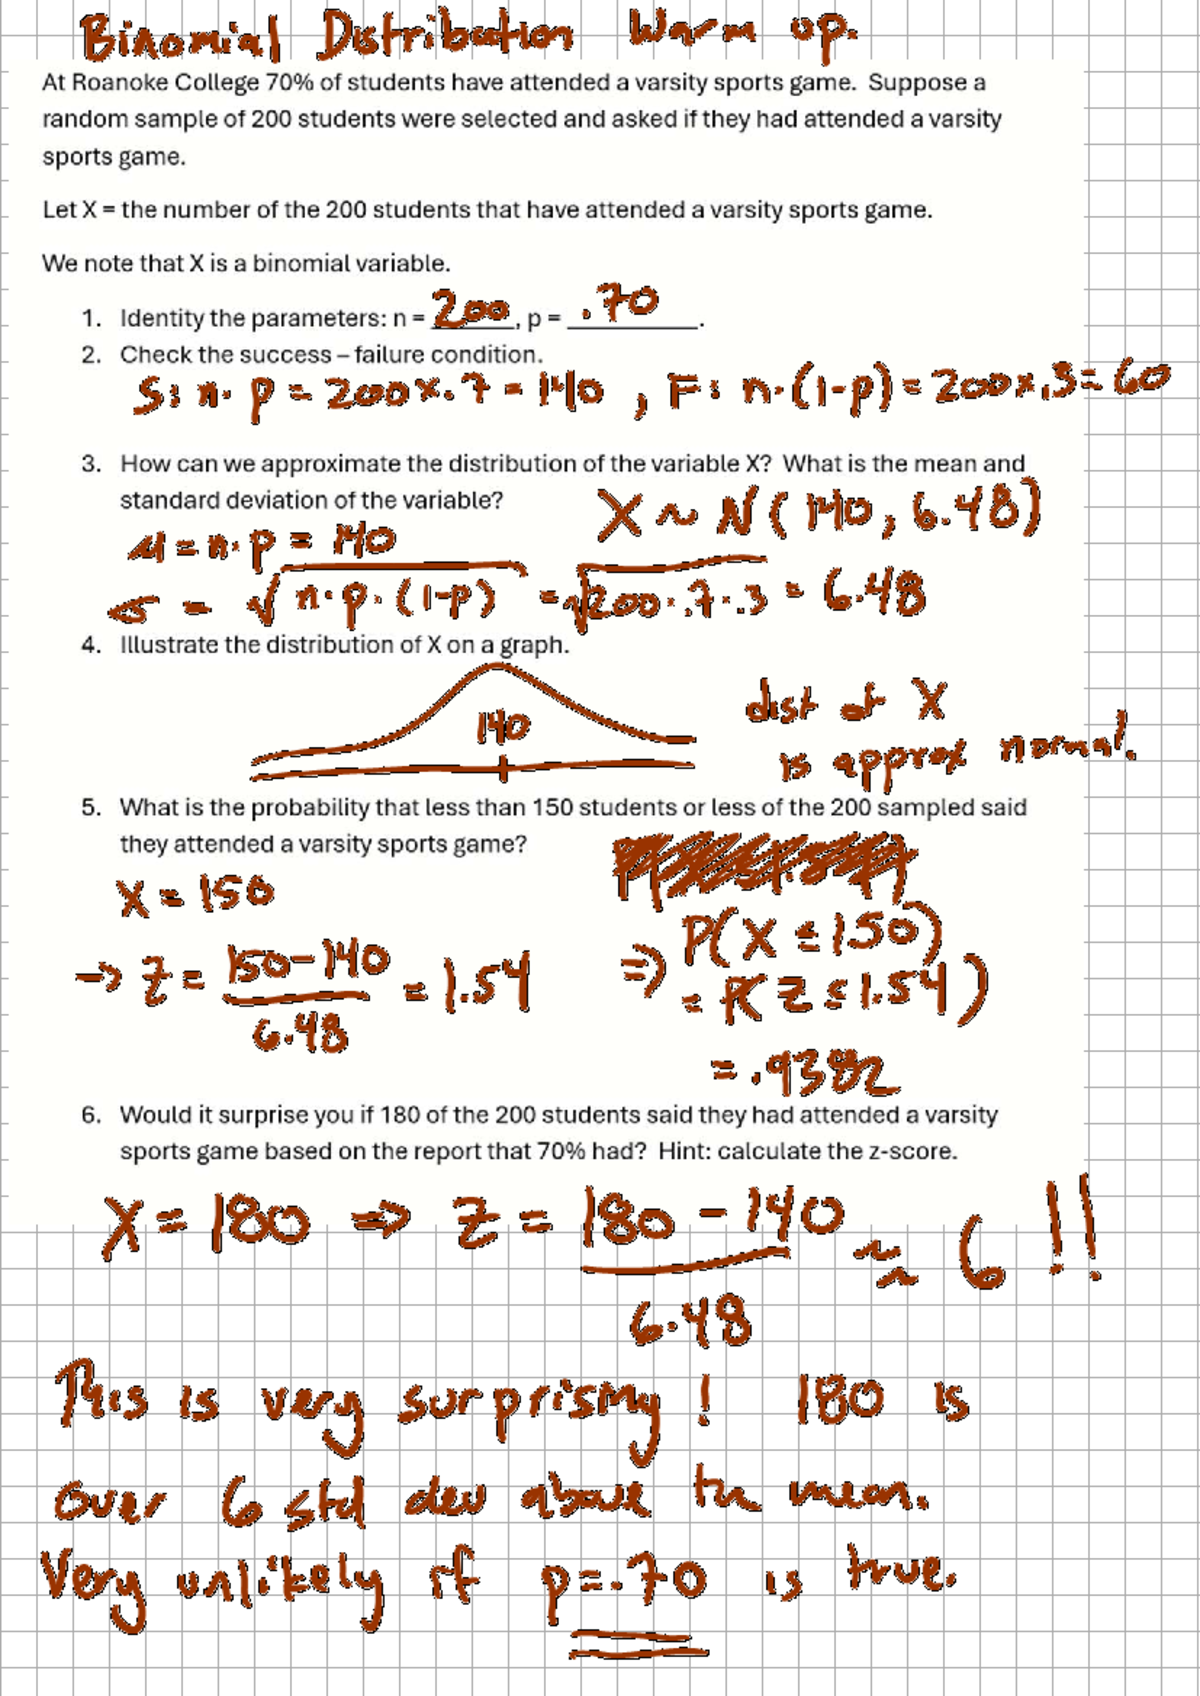 Binomial Distribution Warm up.
At Roanoke College 70% of students have attended a varsity sports game. Suppose a
random sample of 200 students were selected and asked if they had attended a varsity
sports game.
Let X = the number of the 200 students that have attended a varsity sports game.
We note that X is a binomial variable.
1. Identity the parameters: n = 200, p = .70.
2. Check the success – failure condition.
S: n· p = 200x.7 = 140 , F: n·(1-p) = 200x.3 = 60
3. How can we approximate the distribution of the variable X? What is the mean and
standard deviation of the variable?
X ~ N(140, 6.48)
μ = n·p = 140
σ = √n·p·(1-p) = √200·.7·.3 = 6.48
4. Illustrate the distribution of X on a graph.
140
dist of X
is approx normal.
5. What is the probability that less than 150 students or less of the 200 sampled said
they attended a varsity sports game?
X = 150
→ Z = 150-140 / 6.48 = 1.54
⇒ P(X ≤ 150)
= P(Z ≤ 1.54)
= .9382
6. Would it surprise you if 180 of the 200 students said they had attended a varsity
sports game based on the report that 70% had? Hint: calculate the z-score.
X = 180 ⇒ Z = 180 - 140 / 6.48 ≈ 6 !!
This is very surprising! 180 is
over 6 std dev above the mean.
Very unlikely if p=.70 is true.